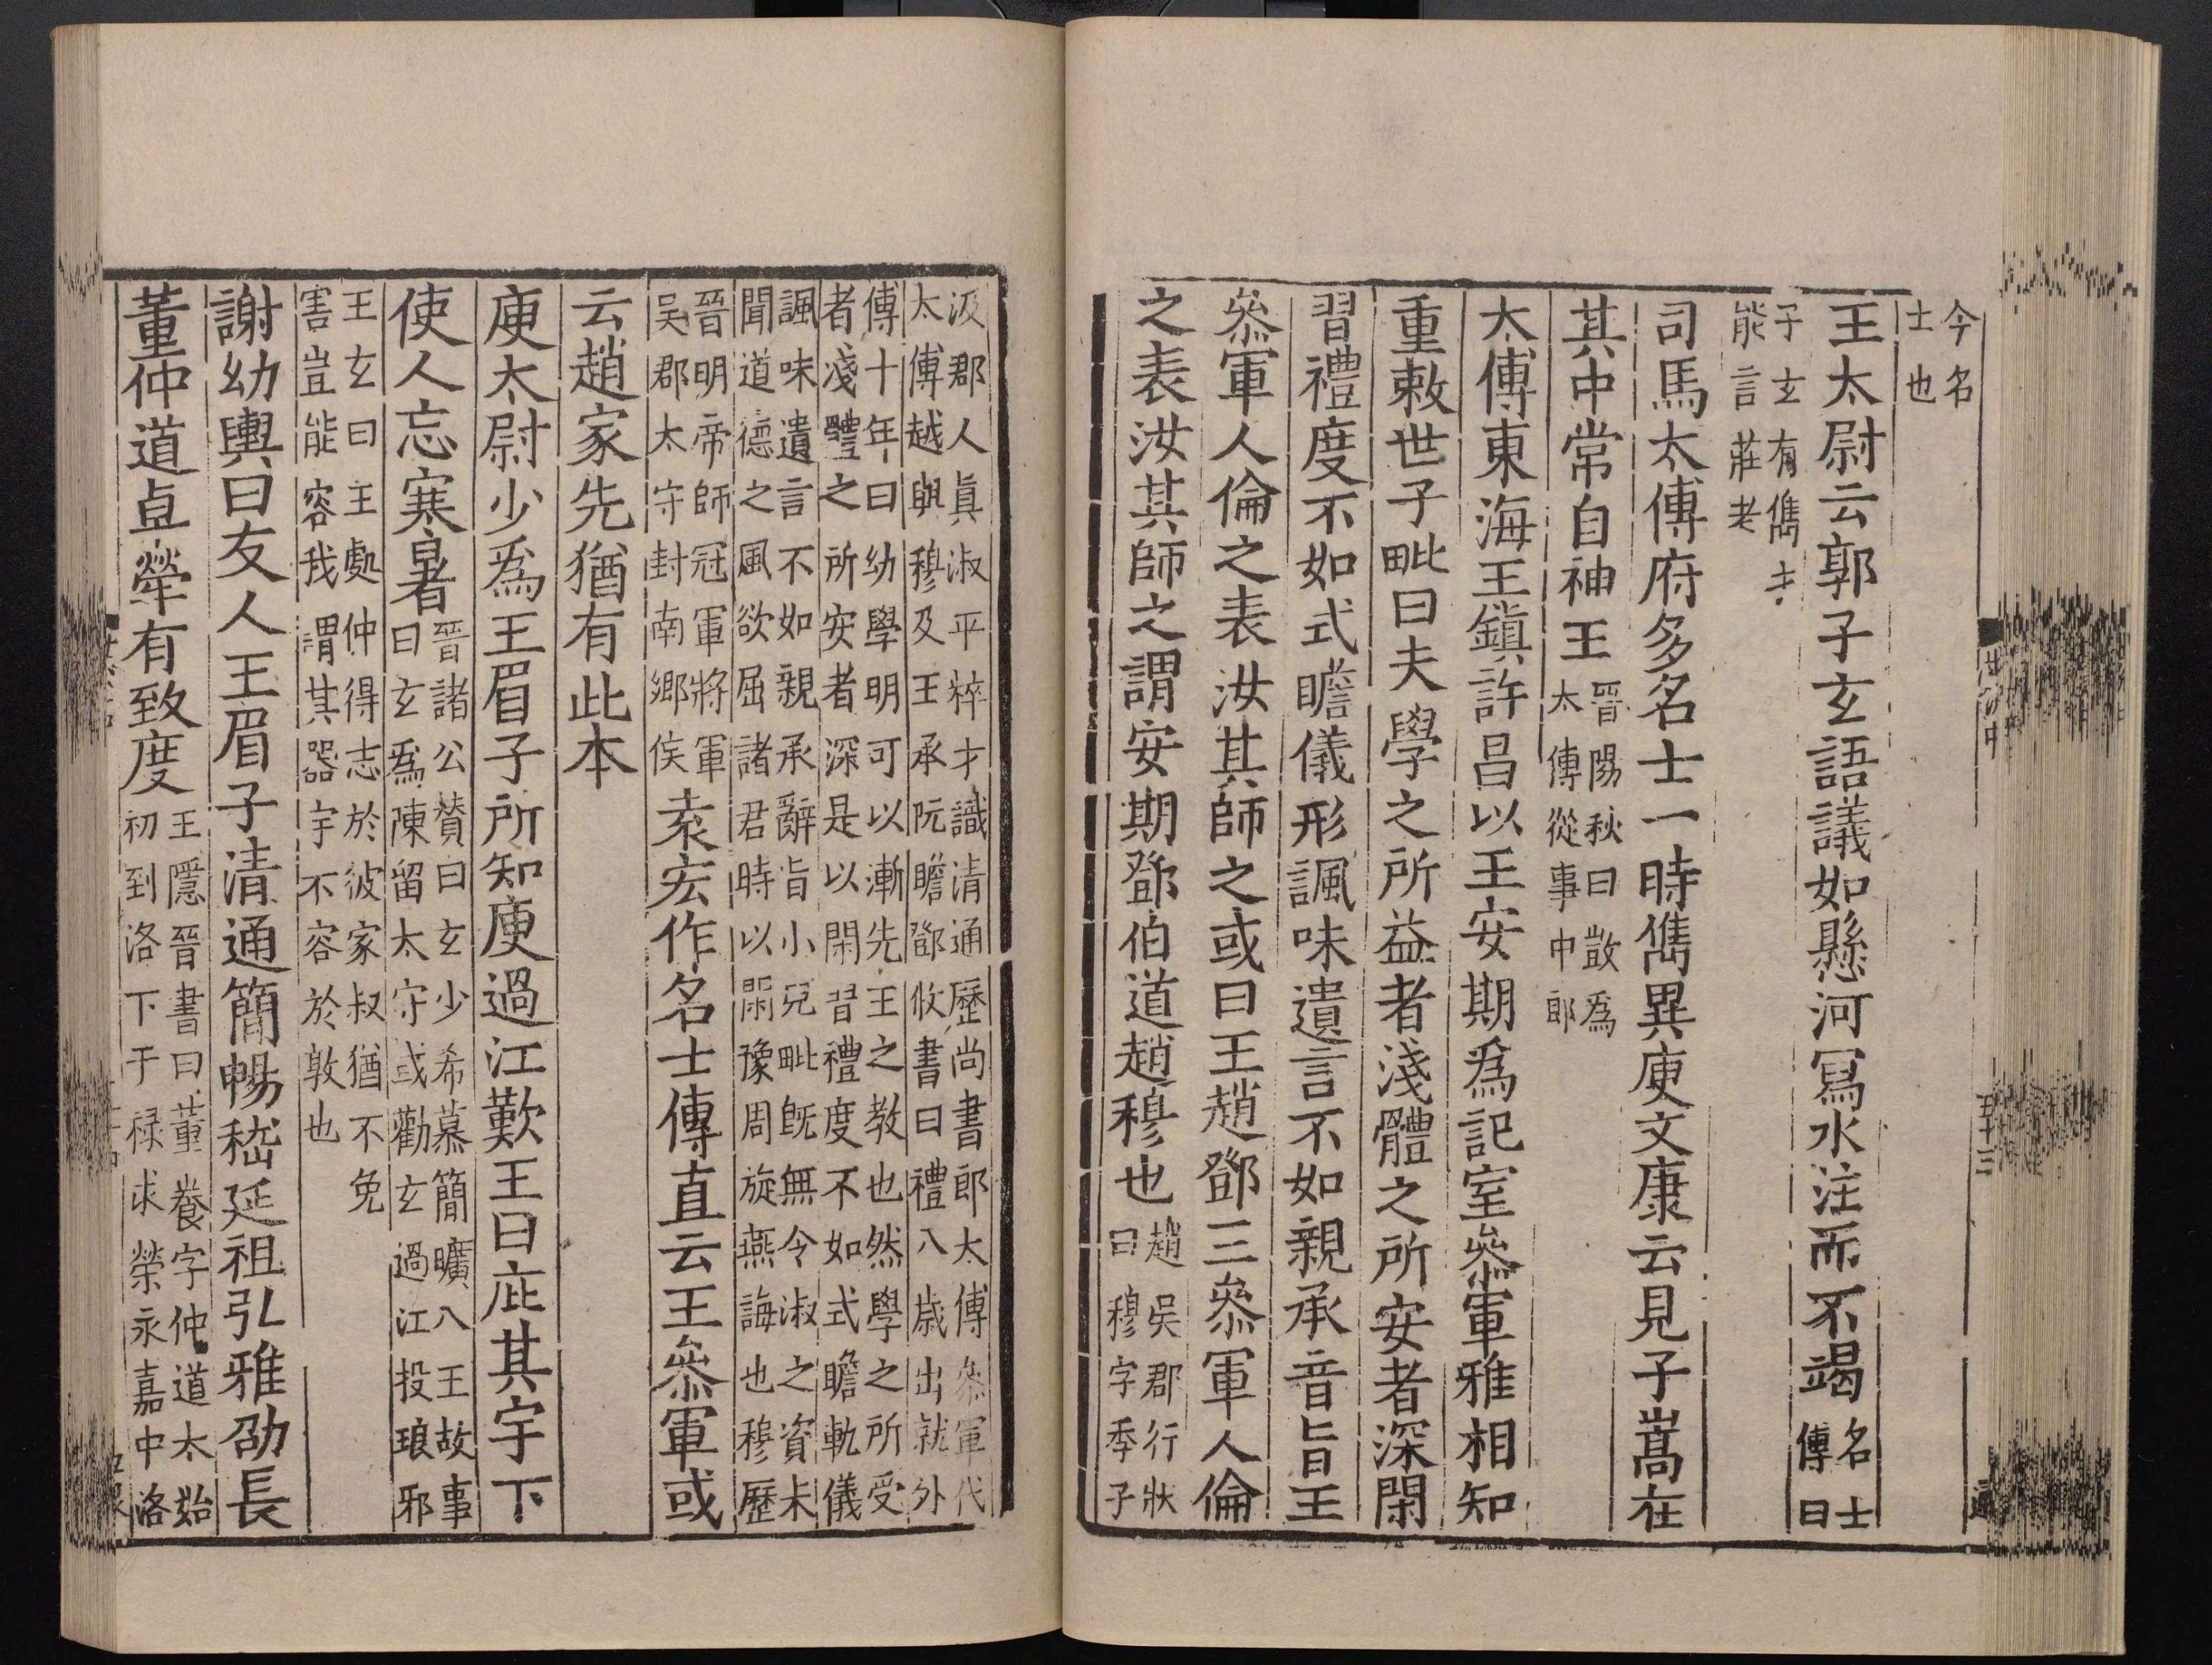 今名
士也
王太尉云郭子玄語議如懸河冩水注而不竭名士
傳曰
子玄有儁才
能言莊老
司馬太傅府多名士一時儁異庾文康云見子嵩在
其中常自神王晉陽秋曰敳爲
太傅從事中郎
太傅東海王鎮許昌以王安期爲記室叅軍雅相知
重敕世子毗曰夫學之所益者淺體之所安者深閑
習禮度不如式瞻儀形諷味遺言不如親承音旨王
叅軍人倫之表汝其師之或曰王趙鄧三叅軍人倫
之表汝其師之謂安期鄧伯道趙穆也趙吳郡行狀
曰穆字季子
汲郡人眞淑平粹才識清通歷尚書郎太傅叅軍代
太傅越與穆及王承阮瞻鄧攸書曰禮八歳出就外
傅十年曰幼學明可以漸先王之教也然學之所受
者淺體之所安者深是以閑習禮度不如式瞻軌儀
諷味遺言不如親承辭旨小兒毗旣無令淑之資未
聞道德之風欲屈諸君時以閑豫周旋燕誨也穆歷
晉明帝師冠軍將軍
吳郡太守封南鄉侯袁宏作名士傳直云王叅軍或
云趙家先猶有此本
庾太尉少爲王眉子所知庾過江歎王曰庇其宇下
使人忘寒暑晉諸公贊曰玄少希慕簡曠八王故事
曰玄爲陳留太守或勸玄過江投琅邪
王玄曰王處仲得志於彼家叔猶不免
害豈能容我謂其器宇不容於敦也
謝幼輿曰友人王眉子清通簡暢嵇延祖弘雅劭長
董仲道卓犖有致度王隱晉書曰董養字仲道太始
初到洛下于禄求榮永嘉中洛